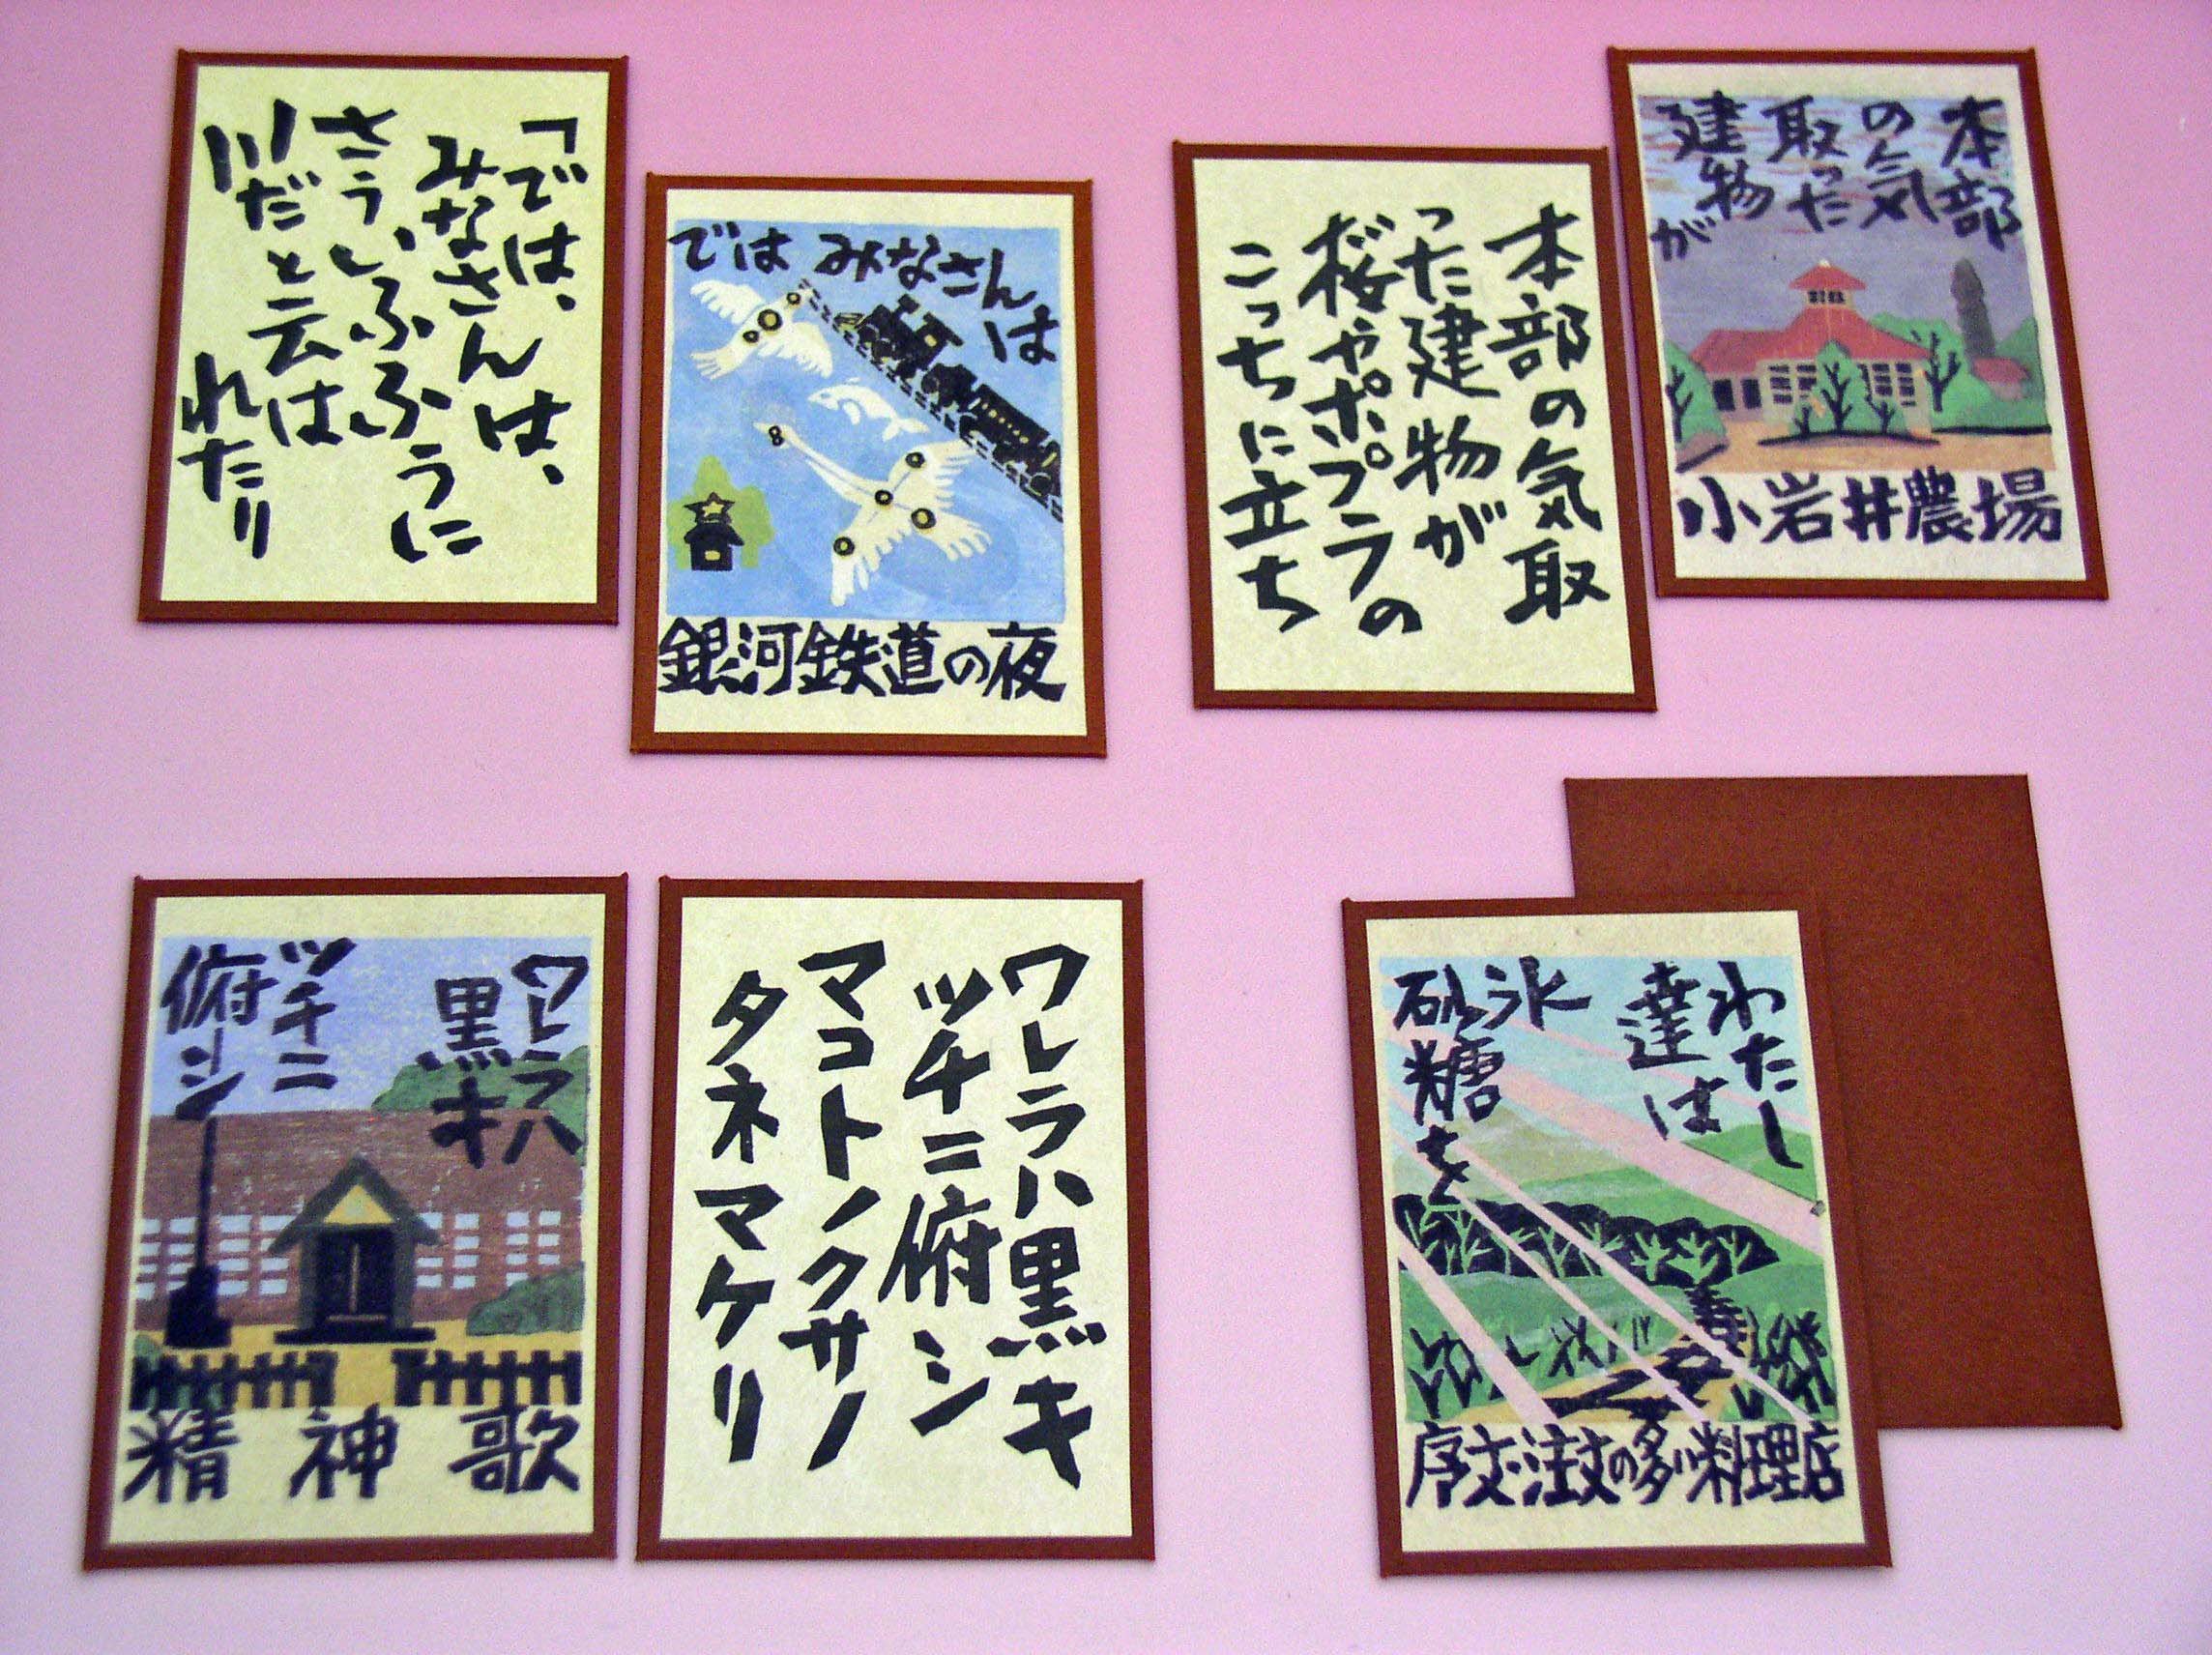 「では、
みなさんは、
さういふふうに
川だと云は
れたり
では みなさんは
銀河鉄道の夜
本部の気取
った建物が
桜やポプラの
こっちに立ち
本部
の気
取った
建物が
小岩井農場
ワレラハ
黒キ
ツチニ
俯シ
精神歌
ワレラハ黒キ
ツチニ俯シ
マコトノクサノ
タネマケリ
わたし
達は
氷
砂糖を
序文・注文の多い料理店